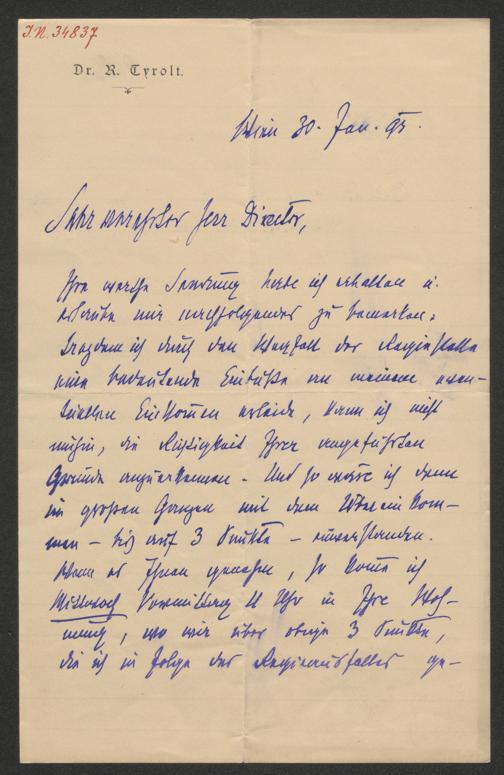 I.N. 34837
Dr. R. Tyrolt.
Wien 30. Jan. 95.
Sehr verehrter Herr Director,
Ihre werthe Sendung habe ich erhalten u.
erlaube mir nachfolgendes zu bemerken:
Trozdem ich durch den Wegfall der Regiestelle
eine bedeutende Einbuße an meinem even-
tuellen Einkommen erleide, kann ich nicht
umhin, die Richtigkeit Ihrer angeführten
Gründe anzuerkennen. Und so wäre ich denn
im großen Ganzen mit dem Übereinkom-
men – bis auf 3 Punkte – einverstanden.
Wenn es Ihnen genehm, so komme ich
Mittwoch Vormittag 11 Uhr in Ihre Woh-
nung, wo wir über obige 3 Punkte,
die ich in Folge des Regieausfalles ge-